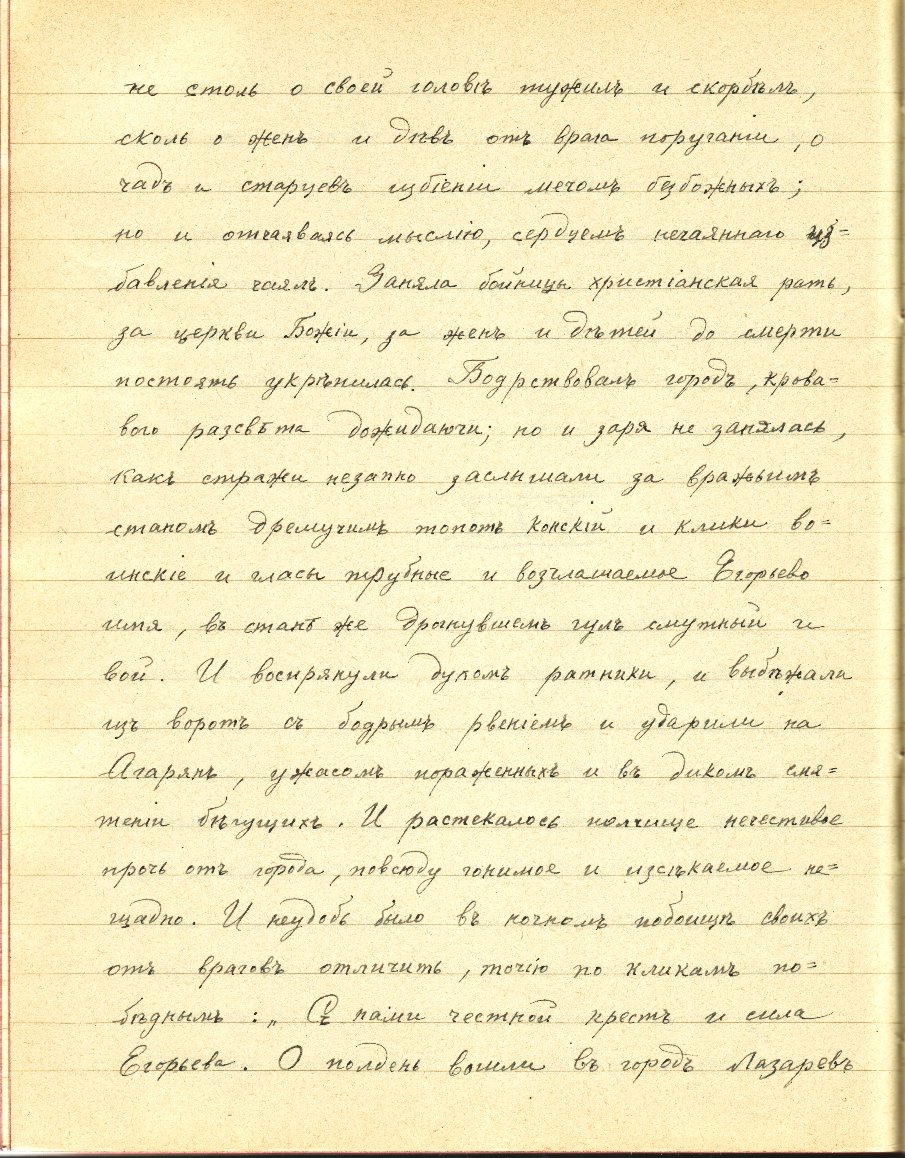 не столь о своей головѣ тужилъ и скорбѣлъ,
сколь о женъ и дѣвъ отъ врага поруганіи, о
чадъ и старцевъ избіеніи мечомъ безбожныхъ;
но и отчаяваясь мыслію, сердцемъ нечаяннаго из=
бавленія чаялъ. Заняла бойницы христіанская рать,
за церкви Божіи, за женъ и дѣтей до смерти
постоять укрѣпилась. Бодрствовалъ городъ, крова=
вого разсвѣта дожидаючи; но и заря не занялась,
какъ стражи незапно заслышали за вражьимъ
станомъ дремучимъ топотъ конскій и клики во=
инскіе и гласы трубные и возглашаемое Егорьево
имя, въ станѣ же дрогнувшемъ гулъ смутный и
вой. И воспрянули духомъ ратники, и выбѣжали
изъ воротъ съ бодрымъ рвеніемъ и ударили на
Агарянъ, ужасомъ пораженныхъ и въ дикомъ смя=
теніи бѣгущихъ. И растекалось полчище нечестивое
прочь отъ города, повсюду гонимое и изсѣкаемое не=
щадно. И неудобь было въ ночномъ побоищѣ своихъ
отъ враговъ отличить, точію по кликамъ по=
бѣднымъ: „ Съ нами честной крестъ и сила
Егорьева. О полдень вошли въ городъ Лазаревъ